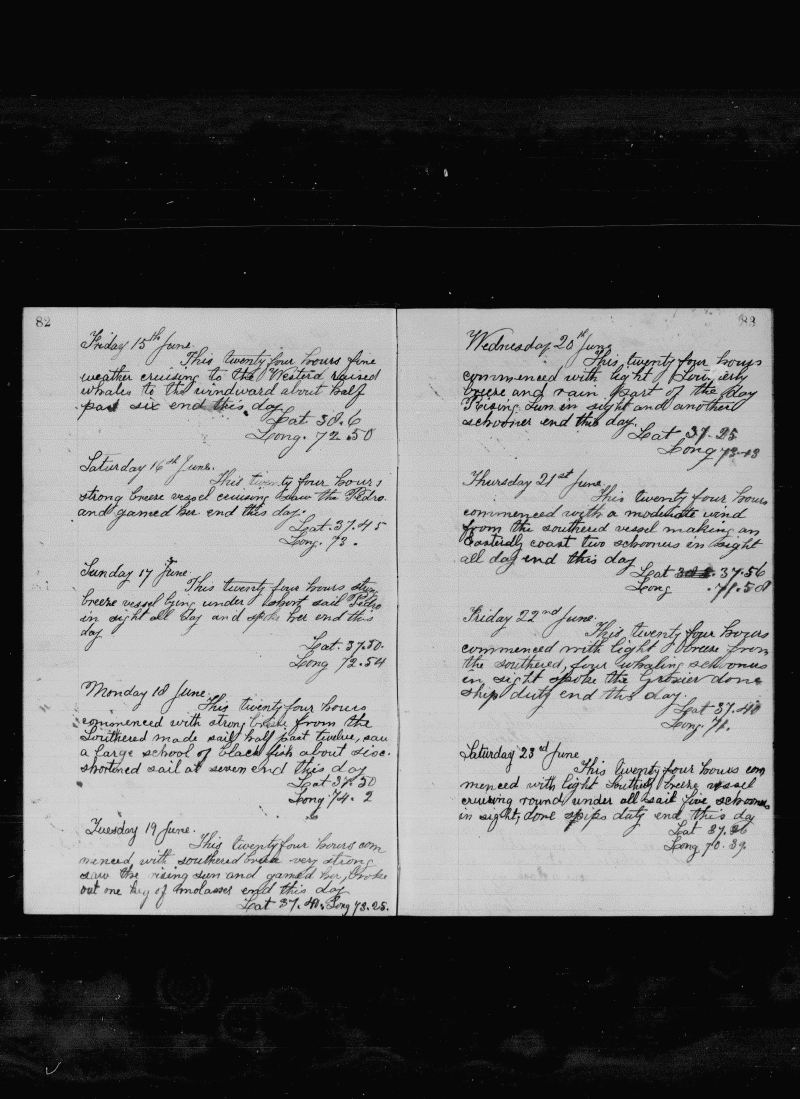 82
Friday 15th June.
This twenty four hours fine
weather cruising to the Westerd raised
whales to the windward about half
past six end this day
Lat 38.6
Long. 72.50
Saturday 16th June.
This twenty four hours
strong breeze vessel cruising saw the Pedro
and gamed her end this day.
Lat. 37.45
Long. 73.
Sunday 17 June.
This twenty four hours strong
breeze vessel lying under short sail Pedro
in sight all day and spoke her end this
day
Lat. 37.50.
Long 72.54
Monday 18 June.
This twenty four hours
commenced with strong breeze from the
Southered made sail half past twelve, saw
a large school of black fish about six.
shortened sail at seven end this day
Lat 37.50
Long 74. 2
Tuesday 19 June.
This twenty four hours com
menced with southered breeze very strong
saw the rising sun and gamed her, broke
out one keg of molasses end this day
Lat 37. Long 73.25.
83
Wednesday 20th June
This, twenty four hours
commenced with light
breeze and rain part of the day
Rising Sun in sight and another
schooner end this day.
Lat 37.25
Long 73.43
Thursday 21st June
This twenty four hours
commenced with a moderate wind
from the southered vessel making an
Easterdly coast two schooners in sight
all day end this day
Lat 37.56
Long .71.58
Friday 22nd June.
This, twenty four hours
commenced with light breeze from
the southered, four whaling schooners
in sight spoke the Grosier done
ship duty end this day.
Lat 37.40
Long. 71.
Saturday 23rd June
This twenty four hours com
menced with light Southerly breeze vessel
cruising round under all sail five schooners
in sight, done ships duty end this day
Lat 37.36
Long 70.39